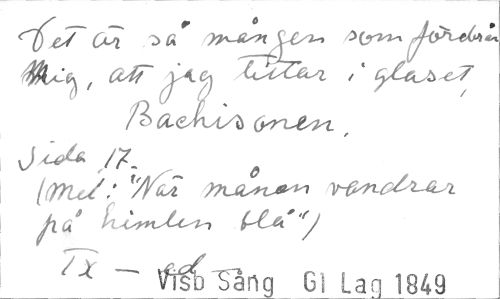 Det är så mången som fördrar
Mig, att jag tittar i glaset,
Bachisonen.
Sida 17.
(Mel: "När månen vandrar
på himlen blå")
Tx — ad —
Visb Sång Gl Lag 1849